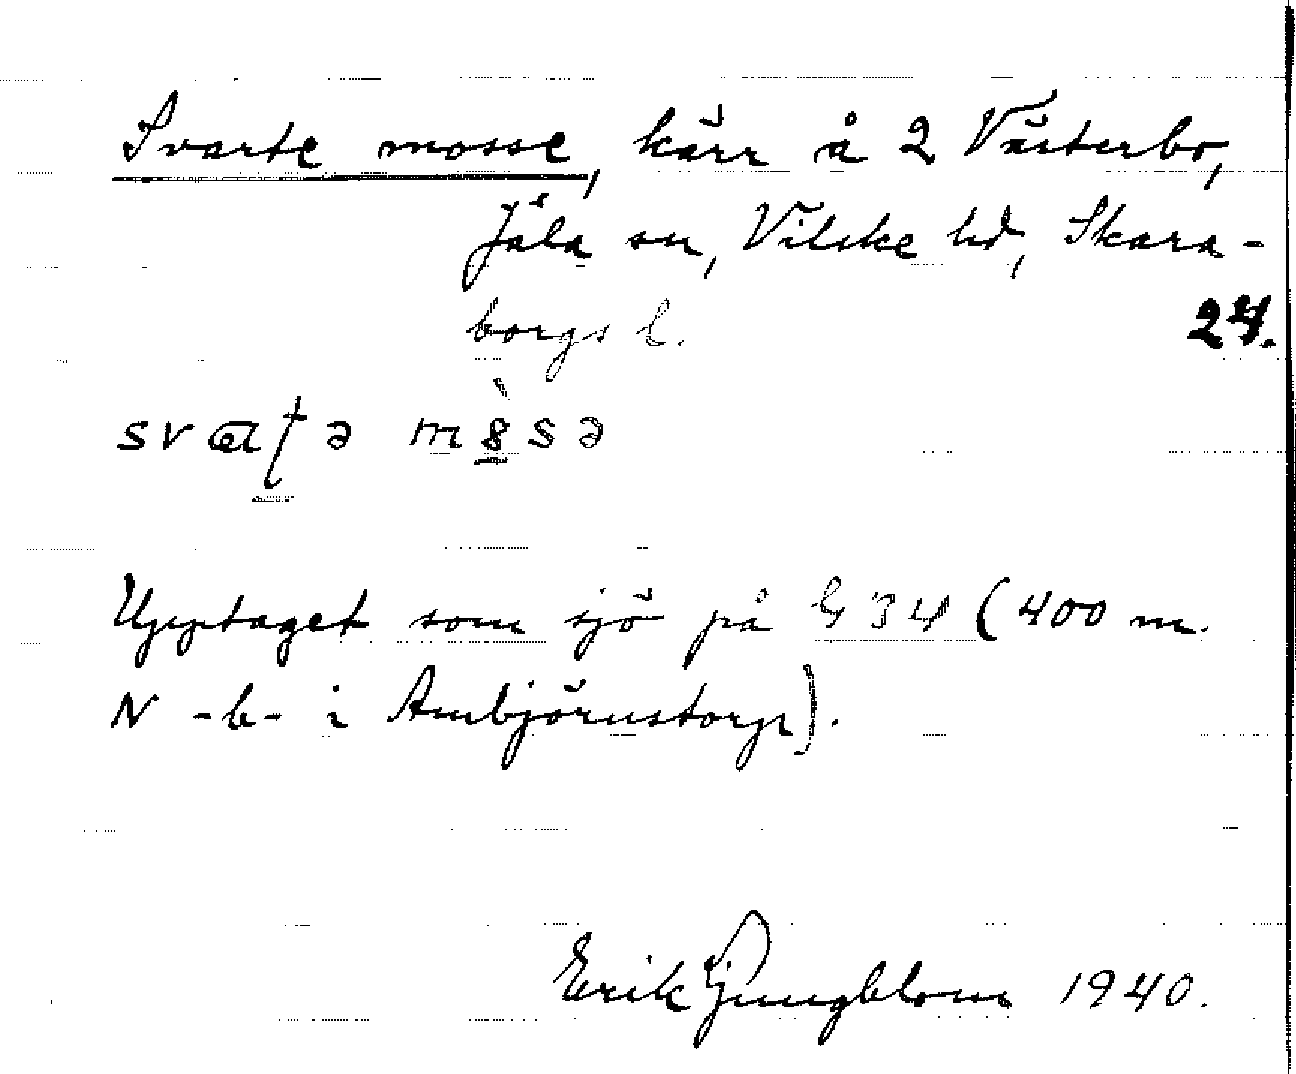 Svarte mosse, kärr å 2 Västerbo,
Jäla sn, Vilske hd, Skara-
borgs l. 24.
Upptaget som sjö på G 34 (400 m.
N -b- i Ambjörnstorp).
Erik Ljungblom 1940.